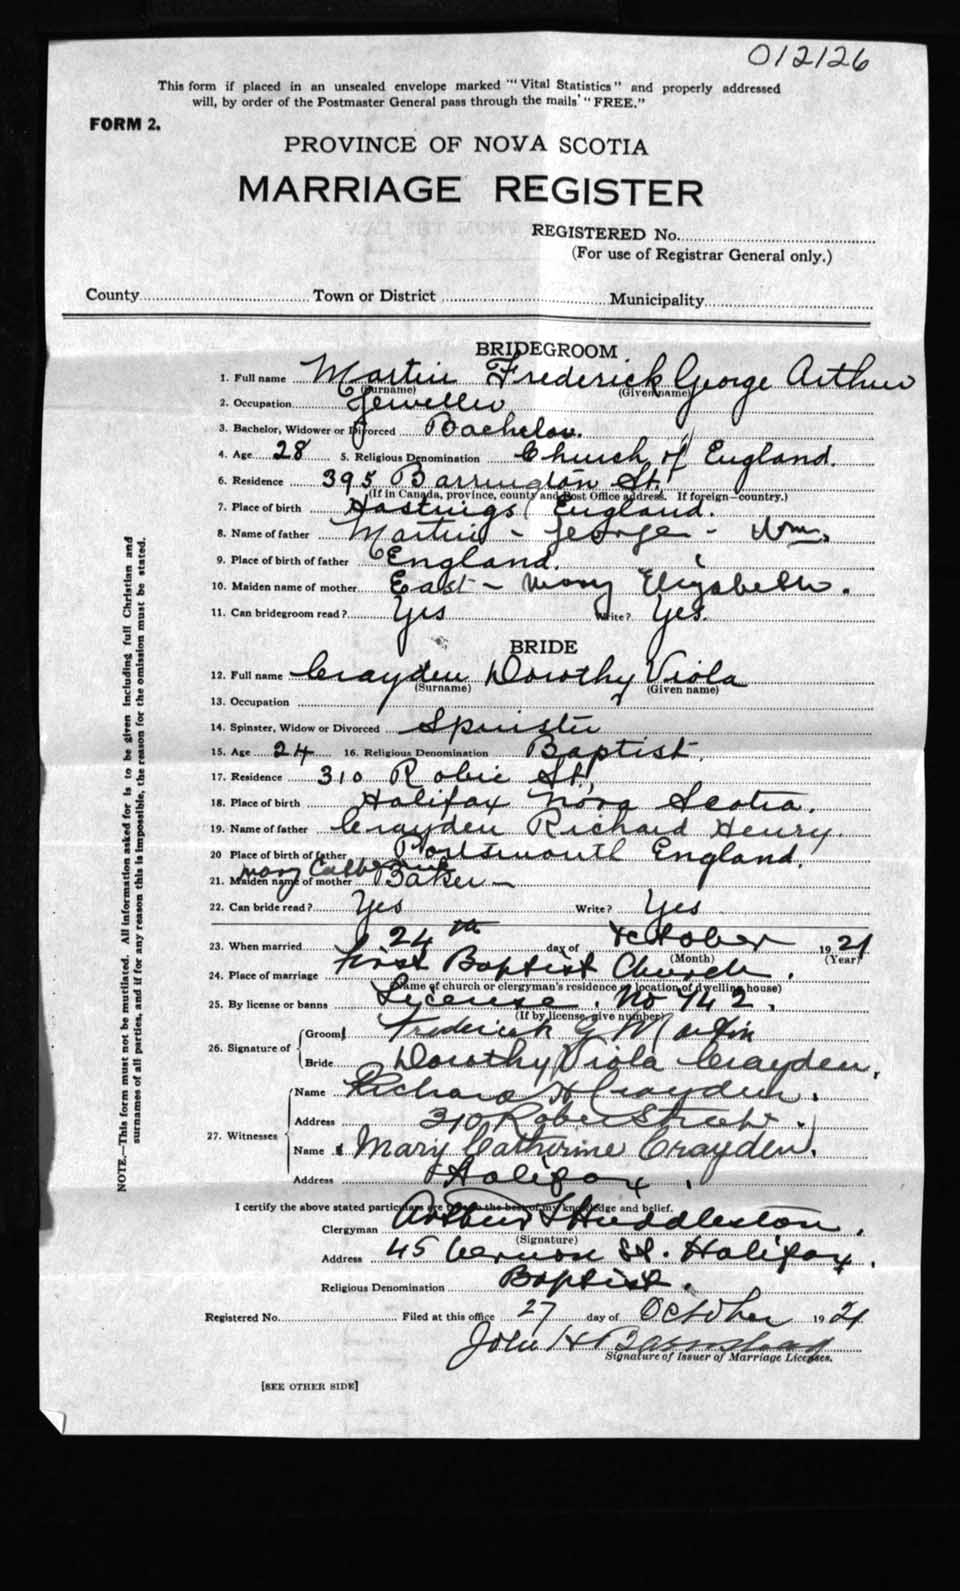 012126
This form if placed in an unsealed envelope marked "Vital Statistics" and properly addressed
will, by order of the Postmaster General pass through the mails "FREE."
FORM 2.
PROVINCE OF NOVA SCOTIA
MARRIAGE REGISTER
REGISTERED No.
(For use of Registrar General only.)
County Town or District Municipality
BRIDEGROOM
1. Full name Martin Frederick George Arthur
(Surname) (Given name)
2. Occupation Jeweller
3. Bachelor, Widower or Divorced Bachelor.
4. Age 28 5. Religious Denomination Church of England.
6. Residence 395 Barrington St.
(If in Canada, province, county and Post Office address. If foreign—country.)
7. Place of birth Hastings England.
8. Name of father Martin - George - Wm.
9. Place of birth of father England.
10. Maiden name of mother East - Mary Elizabeth.
11. Can bridegroom read? Yes Write? Yes.
BRIDE
12. Full name Crayden Dorothy Viola
(Surname) (Given name)
13. Occupation
14. Spinster, Widow or Divorced Spinster
15. Age 24 16. Religious Denomination Baptist.
17. Residence 310 Robie St.
18. Place of birth Halifax Nova Scotia.
19. Name of father Crayden Richard Henry.
20 Place of birth of father Portsmouth England.
21. Maiden name of mother Mary Catherine Baker -
22. Can bride read? Yes Write? Yes
23. When married 24th day of October 1921
(Month) (Year)
24. Place of marriage First Baptist Church.
(Name of church or clergyman's residence or location of dwelling house)
25. By license or banns License. No 742.
(If by license, give number)
26. Signature of Groom Frederick G Martin
Bride Dorothy Viola Crayden.
27. Witnesses Name Richard H Crayden.
Address 310 Robie Street.
Name Mary Catherine Crayden.
Address Halifax.
I certify the above stated particulars are true to the best of my knowledge and belief.
Clergyman Arthur S Huddleston.
(Signature)
Address 45 Vernon St. Halifax.
Religious Denomination Baptist.
Registered No. Filed at this office 27 day of October 1921
John H Barnstead
Signature of Issuer of Marriage Licenses.
[SEE OTHER SIDE]
NOTE.—This form must not be mutilated. All information asked for is to be given including full Christian and
surnames of all parties, and if for any reason this is impossible, the reason for the omission must be stated.